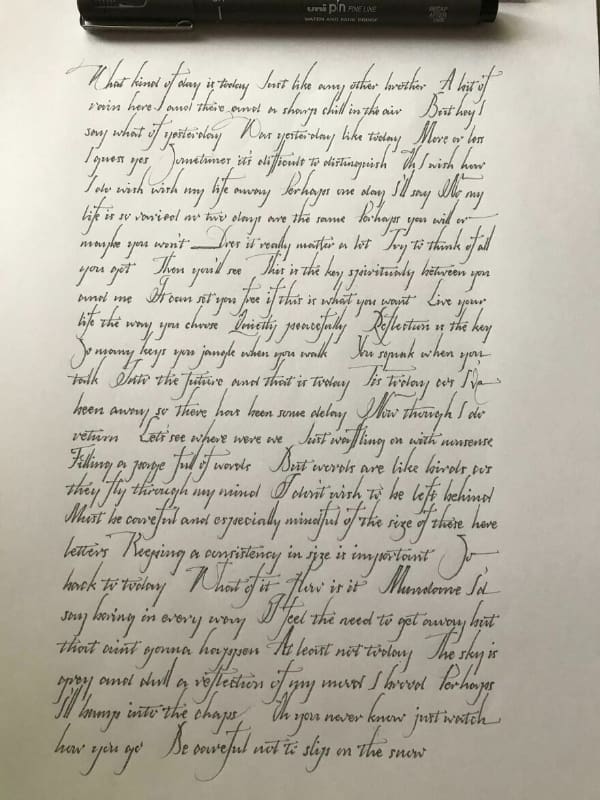 uni pin FINE LINE
WATER AND FADE PROOF
What kind of day is today Just like any other brother A bit of
rain here I and there and a sharp chill in the air But hey I
say what of yesterday Was yesterday like today More or less
I guess yes Sometimes it's difficult to distinguish Oh I wish how
I do wish wish my life away Perhaps one day I'll say No my
life is so varied no two days are the same Perhaps you will or
maybe you won't Does it really matter a lot Try to think of all
you got Then you'll see This is the key spiritualy between you
and me It can set you free if this is what you want Live your
life the way you choose Quietly peacefully Reflection is the key
So many keys you jangle when you walk You squeak when you
talk Into the future and that is today Tis today as I've
been away so there has been some delay Now though I do
return Let's see where were we Just waffling on with nonsense
Filling a page full of words But words are like birds as
they fly through my mind I don't wish to be left behind
Must be careful and especially mindful of the size of these here
letters Keeping a consistency in size is important So
back to today What of it How is it Mundane I'd
say boring in every way I feel the need to get away but
that aint gonna happen At least not today The sky is
grey and dull a reflection of my mood I brood Perhaps
I'll bump into the chaps Oh you never know just watch
how you go Be careful not to slip on the snow